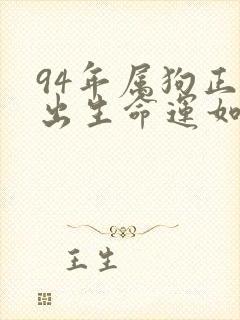 94年属狗正
出生命运如
王生